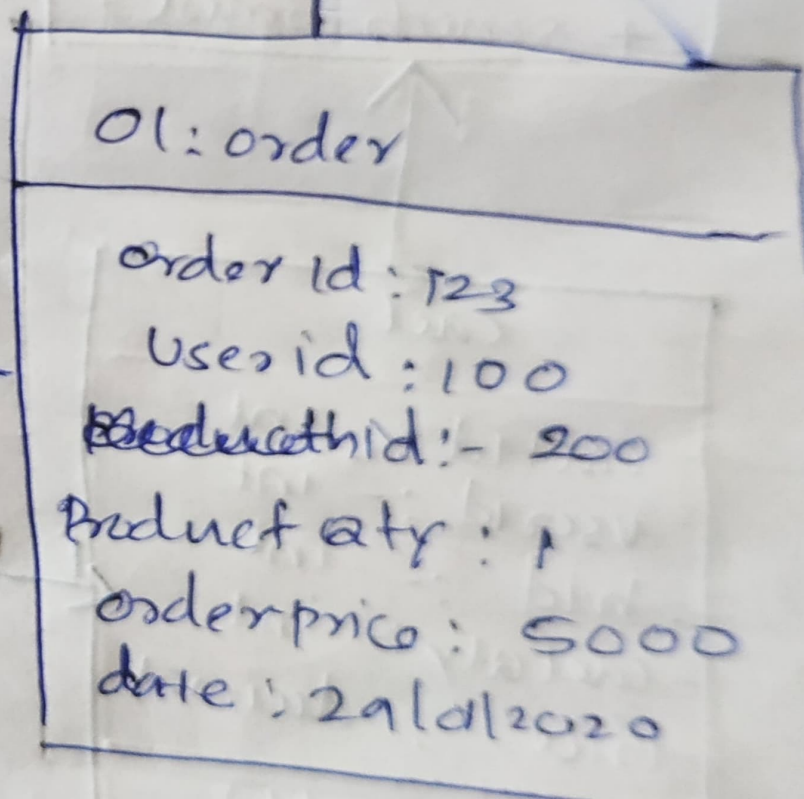 O1: order
order Id : 123
User id : 100
id :- 200
Product Qty : 1
order price : 5000
date : 29/01/2020